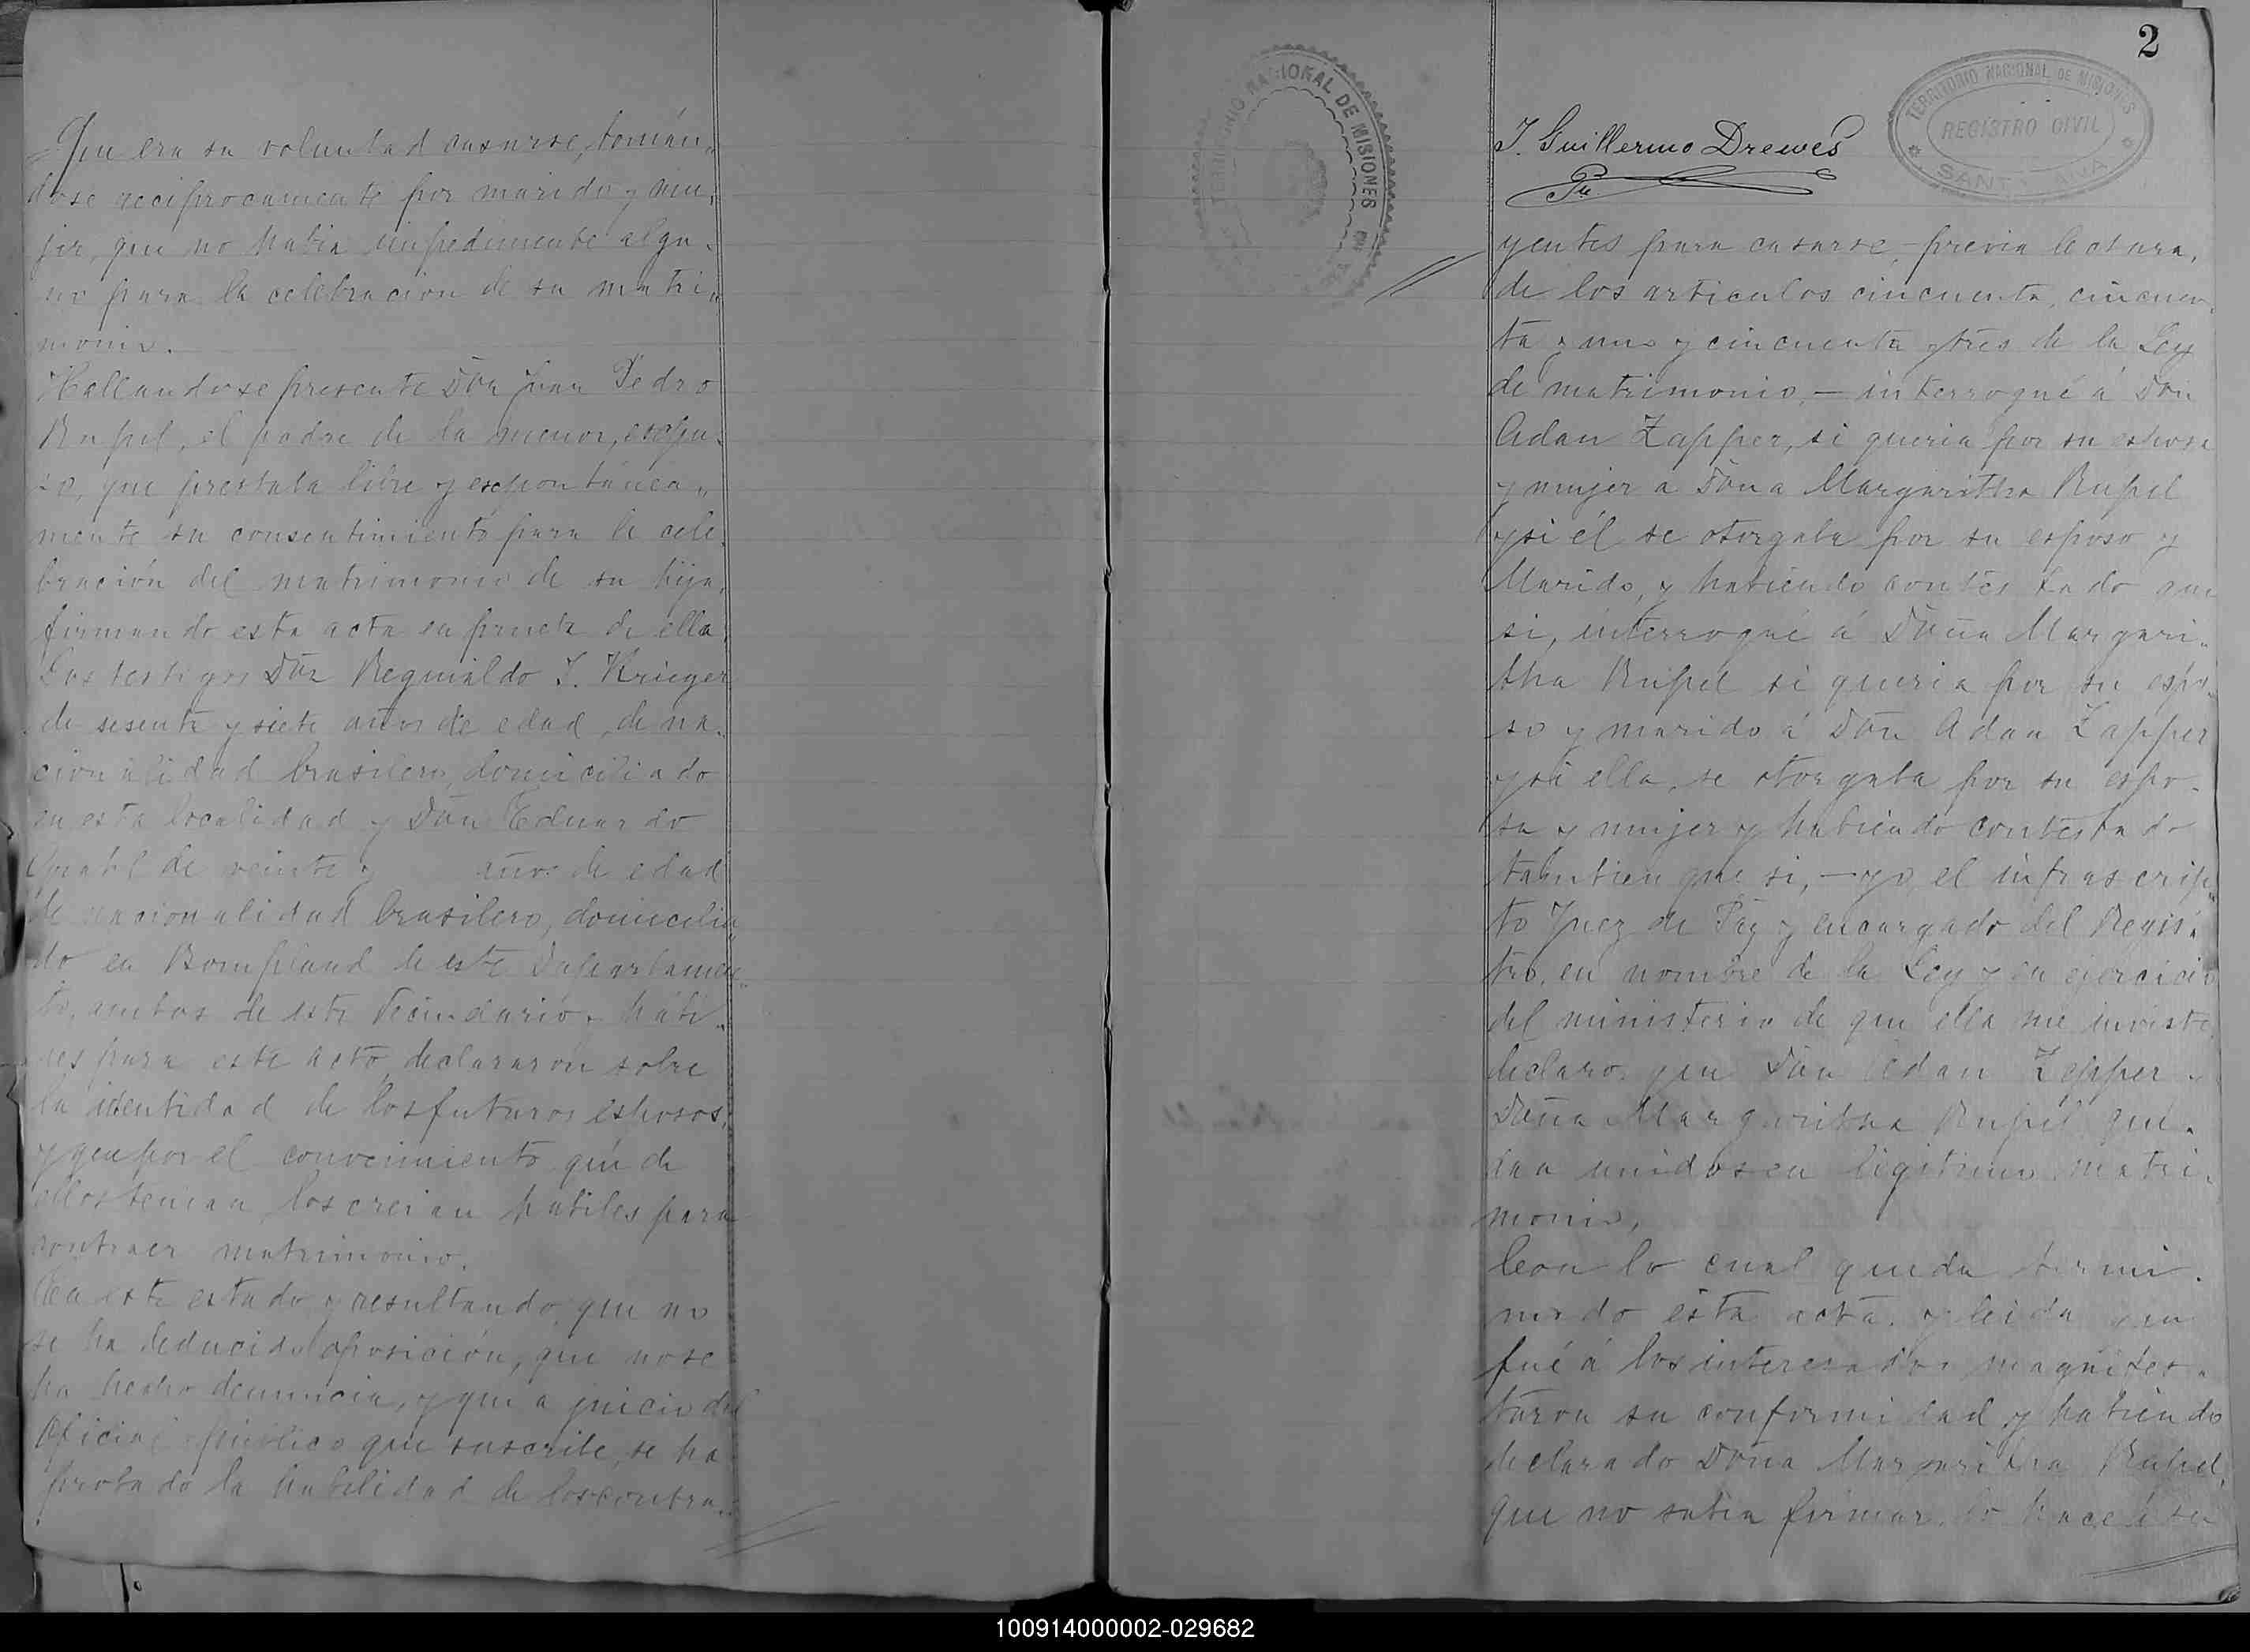 Que era su voluntad casarse, tomán„
dose reciprocamente por marido y mu„
jer, que no habia impedimento algu„
no para la celebracion de su matri„
monio.
Hallandose presente Don Juan Pedro
Rupel, el padre de la menor, expu„
so, que prestaba libre y expontánea„
mente su consentimiento para la cele„
bración del matrimonio de su hija,
firmando esta acta en prueba de ella.
Los testigos Don Reguinaldo J. Krieger
de sesenta y siete años de edad, de na„
cionalidad brasilero, domiciliado
en esta localidad y Don Eduardo
de veinte y años de edad
de nacionalidad brasilero, domicilia„
do en Bompland de este Departamen„
to, ambos de este Vecindario, hábi„
les para este acto, declararon sobre
la identidad de los futuros esposos,
y que por el conocimiento que de
ellos tenian, los creian habiles para
contraer matrimonio.
En este estado y resultando que no
se ha deducido oposición, que no se
ha hecho denuncia, y que a juicio del
Oficial publico que suscribe, se ha
probado la habilidad de los contra„
2
TERRITORIO NACIONAL DE MISIONES
TERRITORIO NACIONAL DE MISIONES
REGISTRO CIVIL
SANTA ANA
J. Guillermo Drewes
yentes para casarse, previa lectura,
de los articulos cincuenta, cincuen„
ta y uno y cincuenta y tres de la Ley
de matrimonio, — interrogué á Don
Adan Zapper, si queria por su esposa
y mujer a Doña Margaritha Rupel
y si él se otorgaba por su esposo y
Marido, y habiendo contestado que
si, interrogué á Doña Margari„
tha Rupel si queria por su espo„
so y marido á Don Adan Zapper
y si ella, se otorgaba por su espo„
sa y mujer y habiendo contestado
tambien que si, — yo, el infrascrip„
to Juez de Paz y encargado del Regis„
tro, en nombre de la Ley y en ejercicio
del ministerio de que ella me inviste,
declaro, que Don Adan Zepper y
Doña Margaritha Rupel que„
dan unidos en legitimo matri„
monio,
Con lo cual queda termi„
nado esta acta, y leida que
fué á los interesados magnifes„
taron su conformidad y habiendo
declarado Doña Margaritha Rupel,
que no sabia firmar, lo hace á su
100914000002-029682